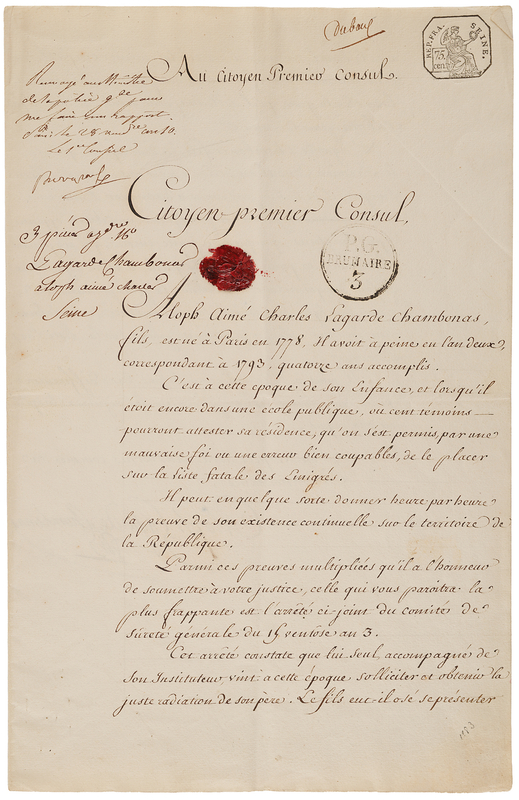 Dubois
REP. FRA.
SEINE.
75
cen
Au Citoyen Premier Consul.
Renvoyé au Ministre
de la police g.de pour
me faire un rapport.
Paris le 28 an 10.
Le 1er Consul
Citoyen premier Consul,
3 pièces
Lagarde Chambonas
aloph aimé charles
Seine
P.G.
BRUMAIRE
3
Aloph Aimé Charles Lagarde Chambonas,
fils, est né à Paris en 1778, Il avoit à peine en l'an deux,
correspondant à 1793, quatorze ans accomplis.
C'est à cette époque de son Enfance, et lorsqu'il
étoit encore dans une école publique, ou cent témoins
pourront attester sa résidence, qu'on s'est permis, par une
mauvaise foi ou une erreur bien coupables, de le placer
sur la liste fatale des Emigrés.
Il peut en quelque sorte donner heure par heure
la preuve de son existence continuelle sur le territoire de
la République.
Parmi ces preuves multipliées qu'il a l'honneur
de soumettre à votre justice, celle qui vous paroitra la
plus frappante est l'arrêté ci-joint du comité de
sûreté générale du 15 ventose an 3.
Cet arrêté constate que lui seul, accompagné de
son Instituteur vint à cette époque solliciter et obtenir la
juste radiation de son père. Le fils eut-il osé se présenter